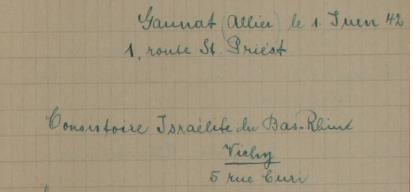 Gannat (Allier) le 1. Juin 42
1, route St. Priest
Consistoire Israélite du Bas-Rhin
Vichy
5 rue Curi